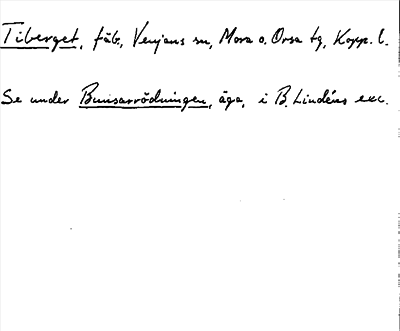 Tiberget, fäb, Venjans sn, Mora o. Orsa tg, Kopp. l.
Se under Bunsarrödningen, äga, i B. Lindéns exc.